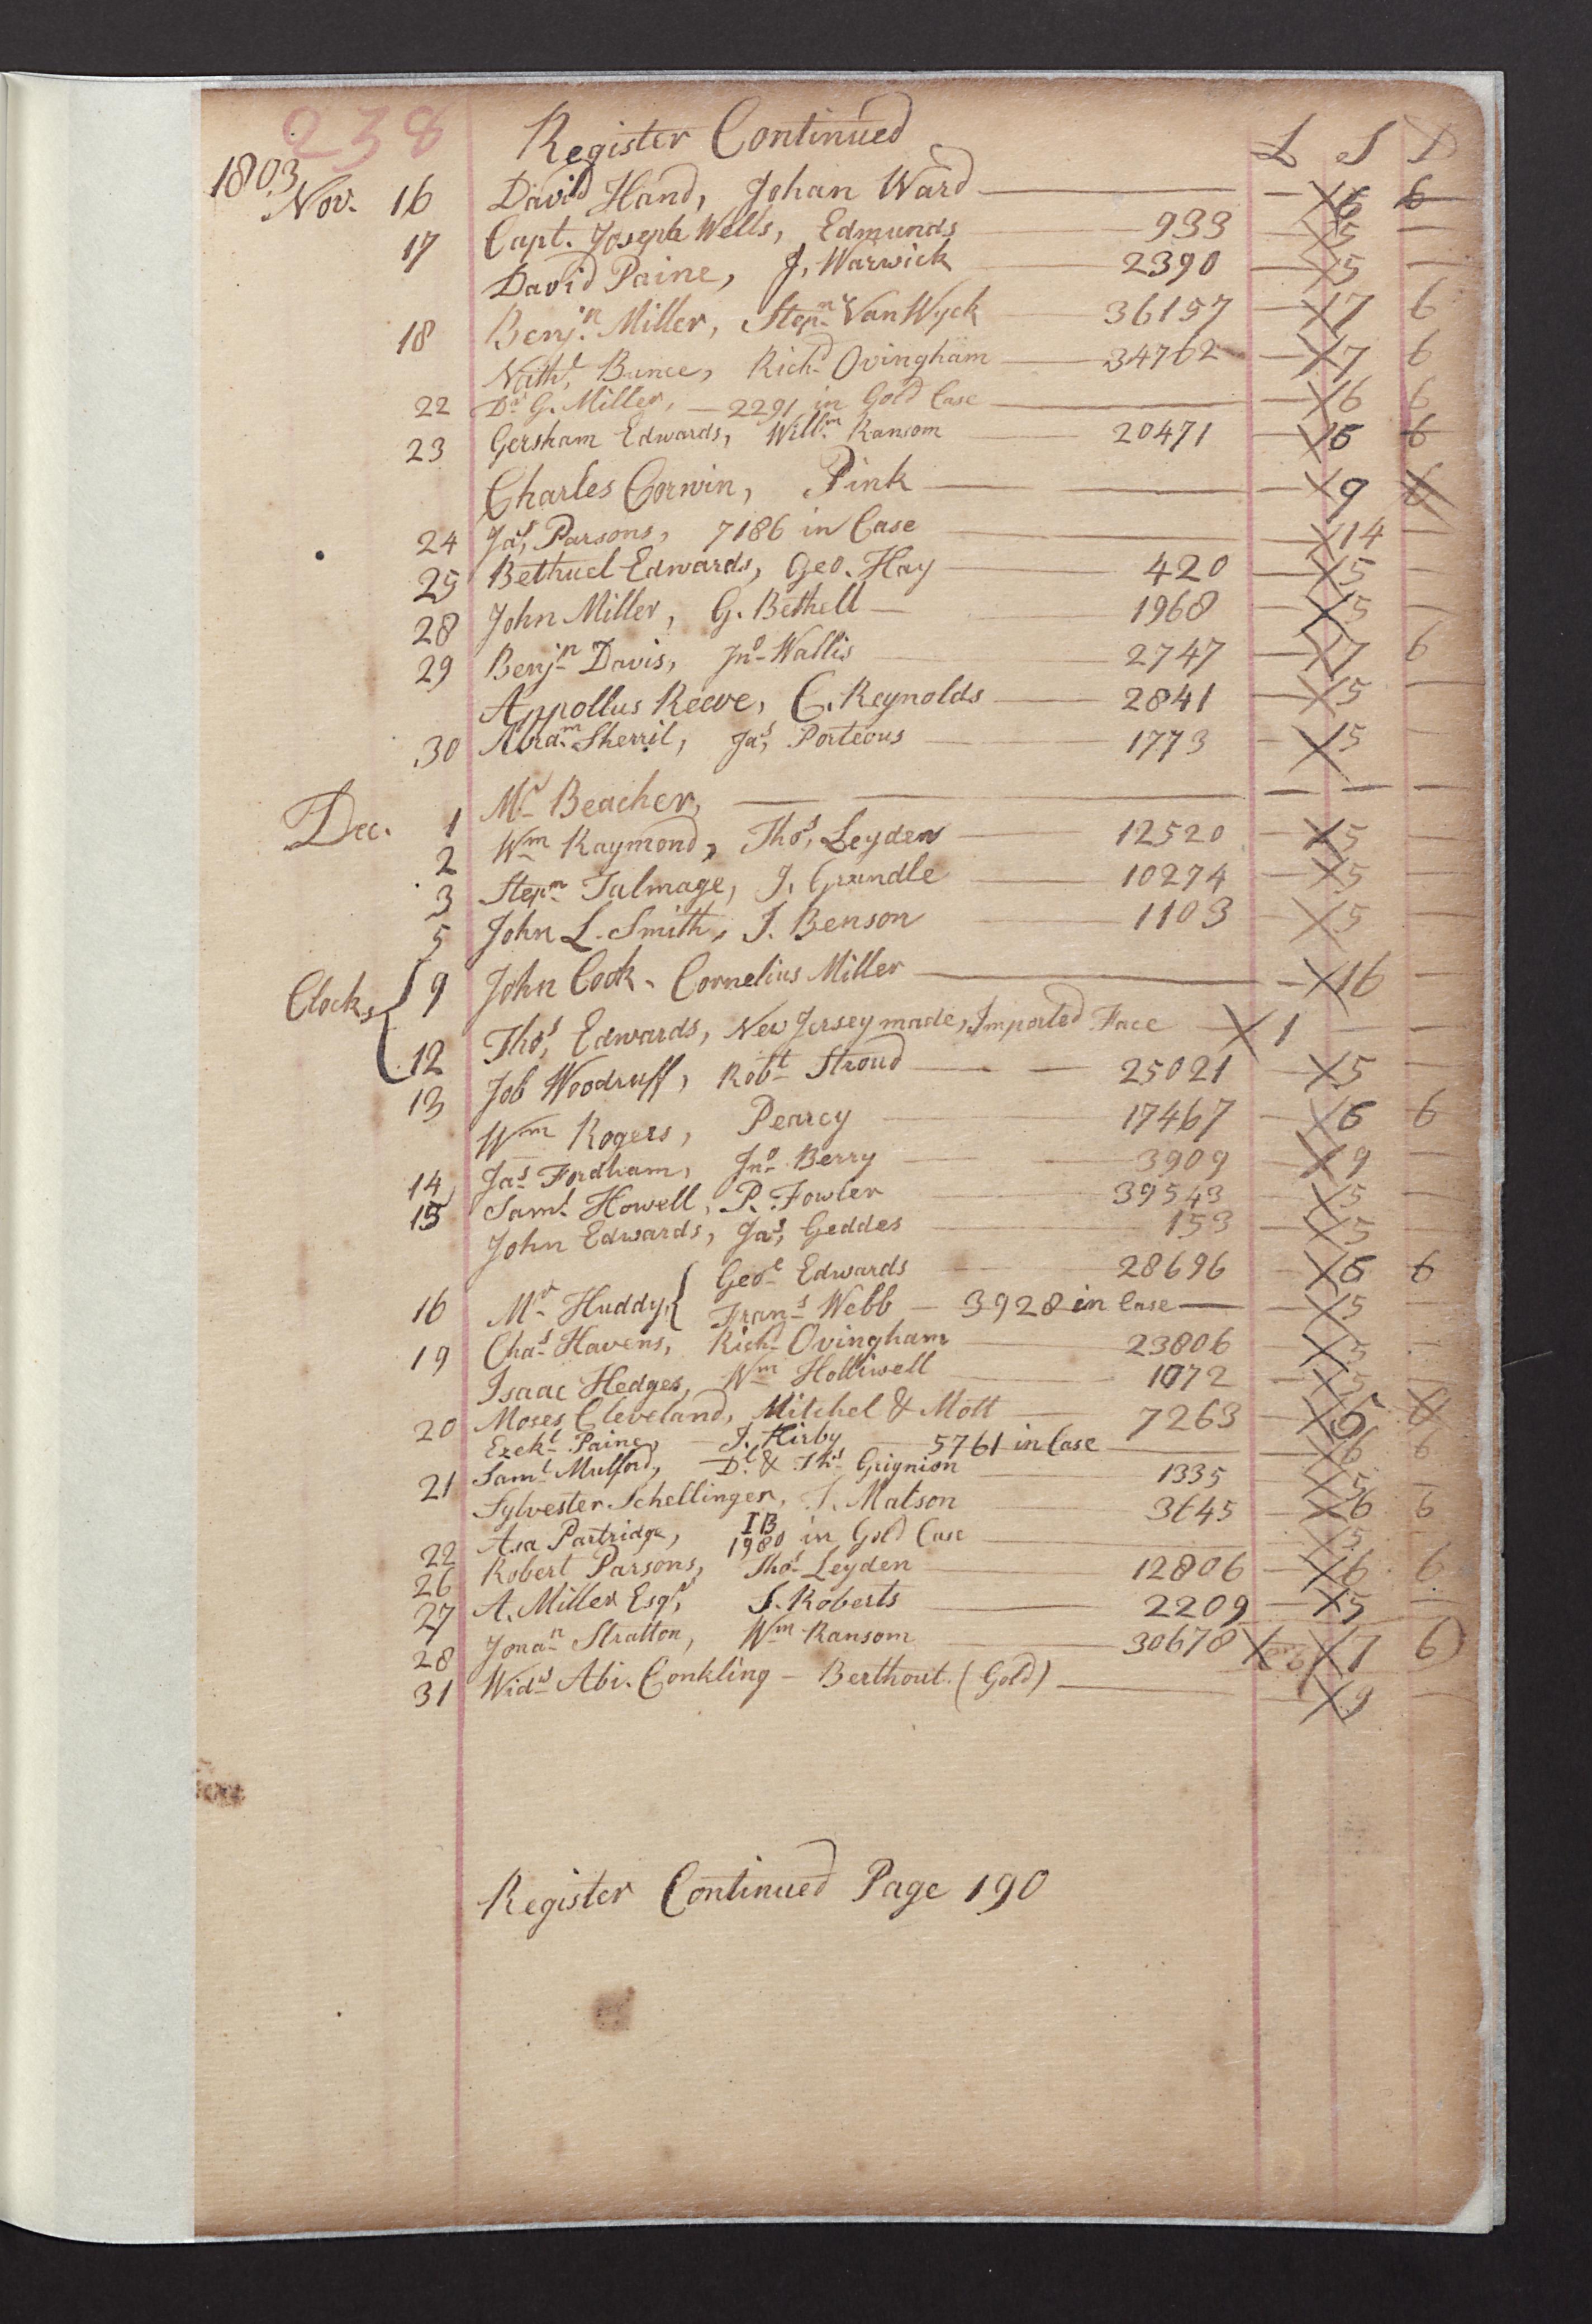 238
Register Continued L S D
1803
Nov. 16 David Hand, Johan Ward — — X 6 6
17 Capt. Joseph Wells, Edmunds — 933 — X 5 —
David Paine, J. Warwick — 2390 — X 5 —
18 Benjn. Miller, Stepn. Van Wyck — 36157 — X 7 6
Nathl. Bunce, Richd. Ovingham — 34762 — X 7 6
22 Dr. G. Miller, — 2291 in Gold Case — — X 6 6
23 Gersham Edwards, Willm. Ransom — 20471 — X 6 6
Charles Corwin, Pink — — — X 9 6
24 Jas, Parsons, 7186 in Case — — X 14 —
25 Bethuel Edwards, Geo. Hay — 420 — X 5 —
28 John Miller, G. Bethell — 1968 — X 5 —
29 Benjn. Davis, Jno. Wallis — 2747 — X 7 6
Appollus Reeve, C. Reynolds — 2841 — X 5 —
30 Abram. Sherril, Jas, Porteous — 1773 — X 5 —
Dec. 1 Mr. Beacher, — — — — —
2 Wm Raymond, Thos, Leyden — 12520 — X 5 —
3 Stepn. Talmage, J. Grundle — 10274 — X 5 —
5 John L. Smith, J. Benson — 1103 — X 5 —
Clocks { 9 John Cook. Cornelius Miller — — X 16 —
12 Thos, Edwards, New Jersey made, Imported Face — X 1 — —
13 Job Woodruff, Robt. Stroud — — 25021 — X 5 —
Wm Rogers, Pearcy — 17467 — X 6 6
14 Jas. Fordham, Jno. Berry — 3909 — X 9 —
15 Saml. Howell, P. Fowler — 39543 — X 5 —
John Edwards, Jas, Geddes — 153 — X 5 —
Geoe. Edwards — 28696 — X 6 6
16 Mr. Huddy, { Frans. Webb — 3928 in Case — — X 5 —
19 Chas. Havens, Richd. Ovingham — 23806 — X 5 —
Isaac Hedges, Wm Holliwell — 1072 — X 5 —
20 Moses Cleveland, Mitchel & Mott — 7263 — X 5
Ezekl. Paine, — J. Kirby — 5761 in Case — — X 6 6
21 Saml Mulford, Dl. & Ths. Grignion 1335 — X 5 —
Sylvester Schellinger, J. Matson — 3645 — X 6 6
22 Asa Partridge, IB 1980 in Gold Case — — X 5 —
26 Robert Parsons, Thos. Leyden — 12806 — X 6 6
27 A. Miller Esqr, S. Roberts — 2209 — X 5 —
28 Jonan. Stratton, Wm Ransom — 30678 X X 7 6
31 Widw. Abi. Conkling — Berthout. (Gold) — — X 9 —
Register Continued Page 190